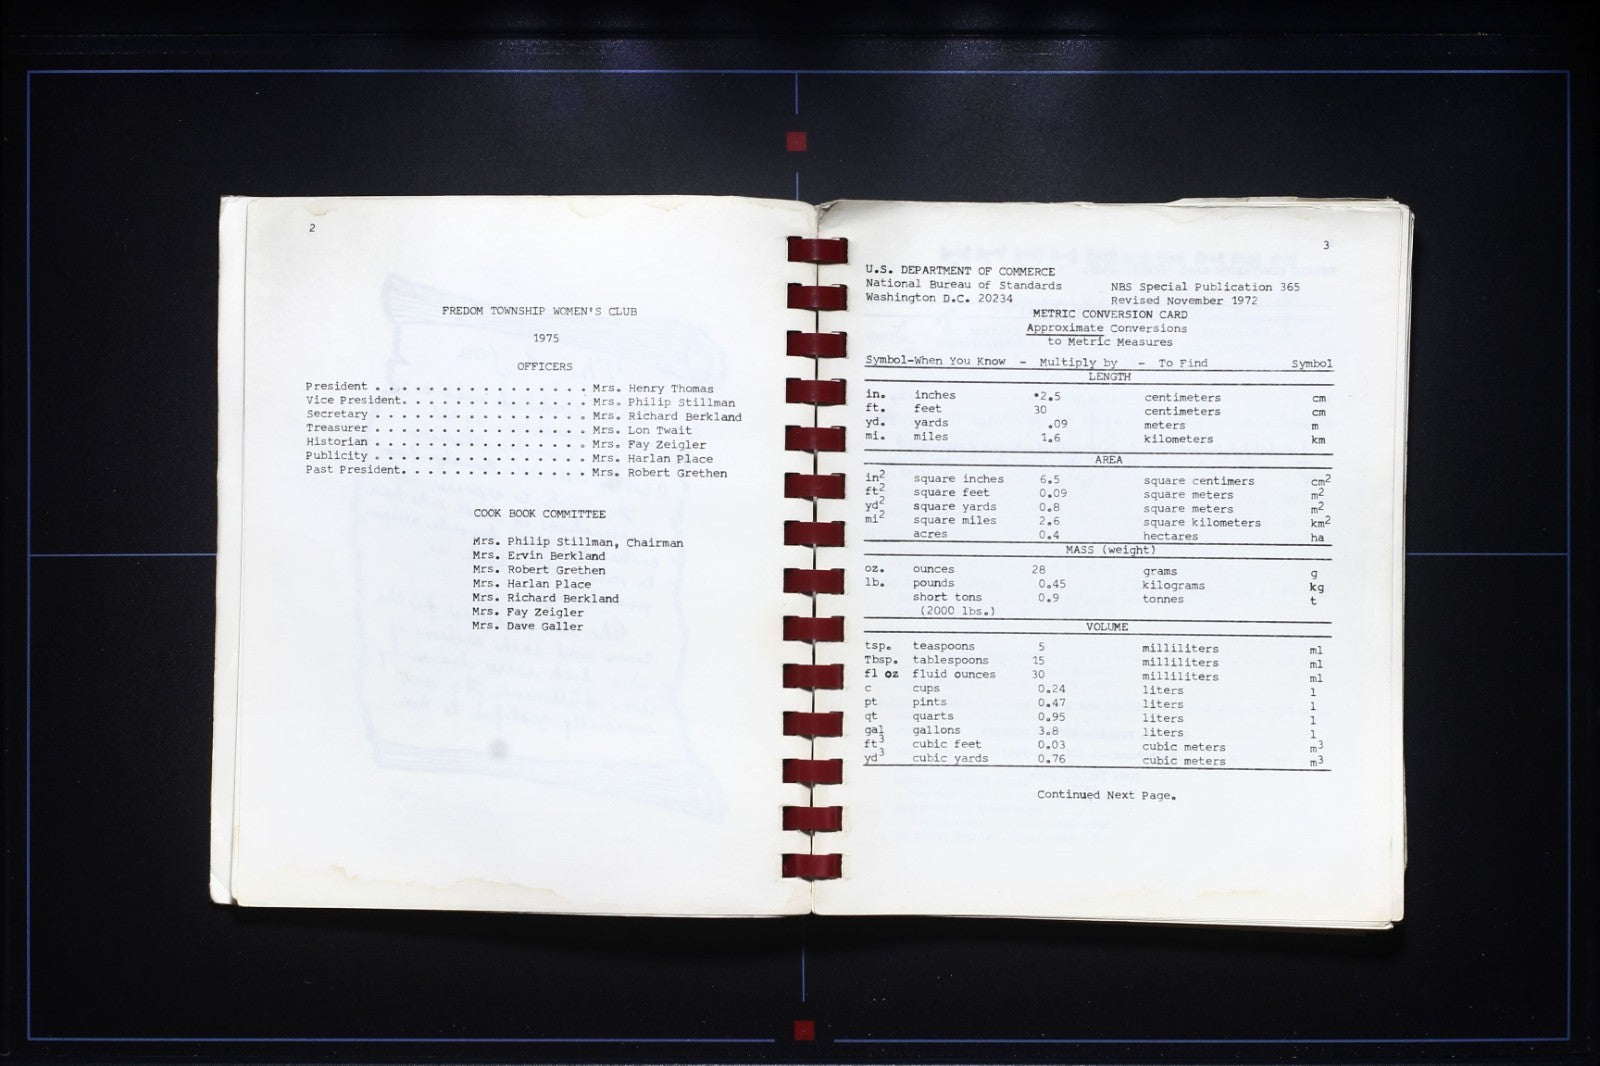 2
FREDOM TOWNSHIP WOMEN'S CLUB
1975
OFFICERS
President . . . . . . . . . . . . . . . . Mrs. Henry Thomas
Vice President. . . . . . . . . . . . . . Mrs. Philip Stillman
Secretary . . . . . . . . . . . . . . . . Mrs. Richard Berkland
Treasurer . . . . . . . . . . . . . . . . Mrs. Lon Twait
Historian . . . . . . . . . . . . . . . . Mrs. Fay Zeigler
Publicity . . . . . . . . . . . . . . . . Mrs. Harlan Place
Past President. . . . . . . . . . . . . . Mrs. Robert Grethen
COOK BOOK COMMITTEE
Mrs. Philip Stillman, Chairman
Mrs. Ervin Berkland
Mrs. Robert Grethen
Mrs. Harlan Place
Mrs. Richard Berkland
Mrs. Fay Zeigler
Mrs. Dave Galler
3
U.S. DEPARTMENT OF COMMERCE
National Bureau of Standards NBS Special Publication 365
Washington D.C. 20234 Revised November 1972
METRIC CONVERSION CARD
Approximate Conversions
to Metric Measures
Symbol-When You Know - Multiply by - To Find Symbol
LENGTH
in. inches •2.5 centimeters cm
ft. feet 30 centimeters cm
yd. yards .09 meters m
mi. miles 1.6 kilometers km
AREA
in² square inches 6.5 square centimers cm²
ft² square feet 0.09 square meters m²
yd² square yards 0.8 square meters m²
mi² square miles 2.6 square kilometers km²
acres 0.4 hectares ha
MASS (weight)
oz. ounces 28 grams g
lb. pounds 0.45 kilograms kg
short tons 0.9 tonnes t
(2000 lbs.)
VOLUME
tsp. teaspoons 5 milliliters ml
Tbsp. tablespoons 15 milliliters ml
fl oz fluid ounces 30 milliliters ml
c cups 0.24 liters l
pt pints 0.47 liters l
qt quarts 0.95 liters l
gal gallons 3.8 liters l
ft³ cubic feet 0.03 cubic meters m³
yd³ cubic yards 0.76 cubic meters m³
Continued Next Page.